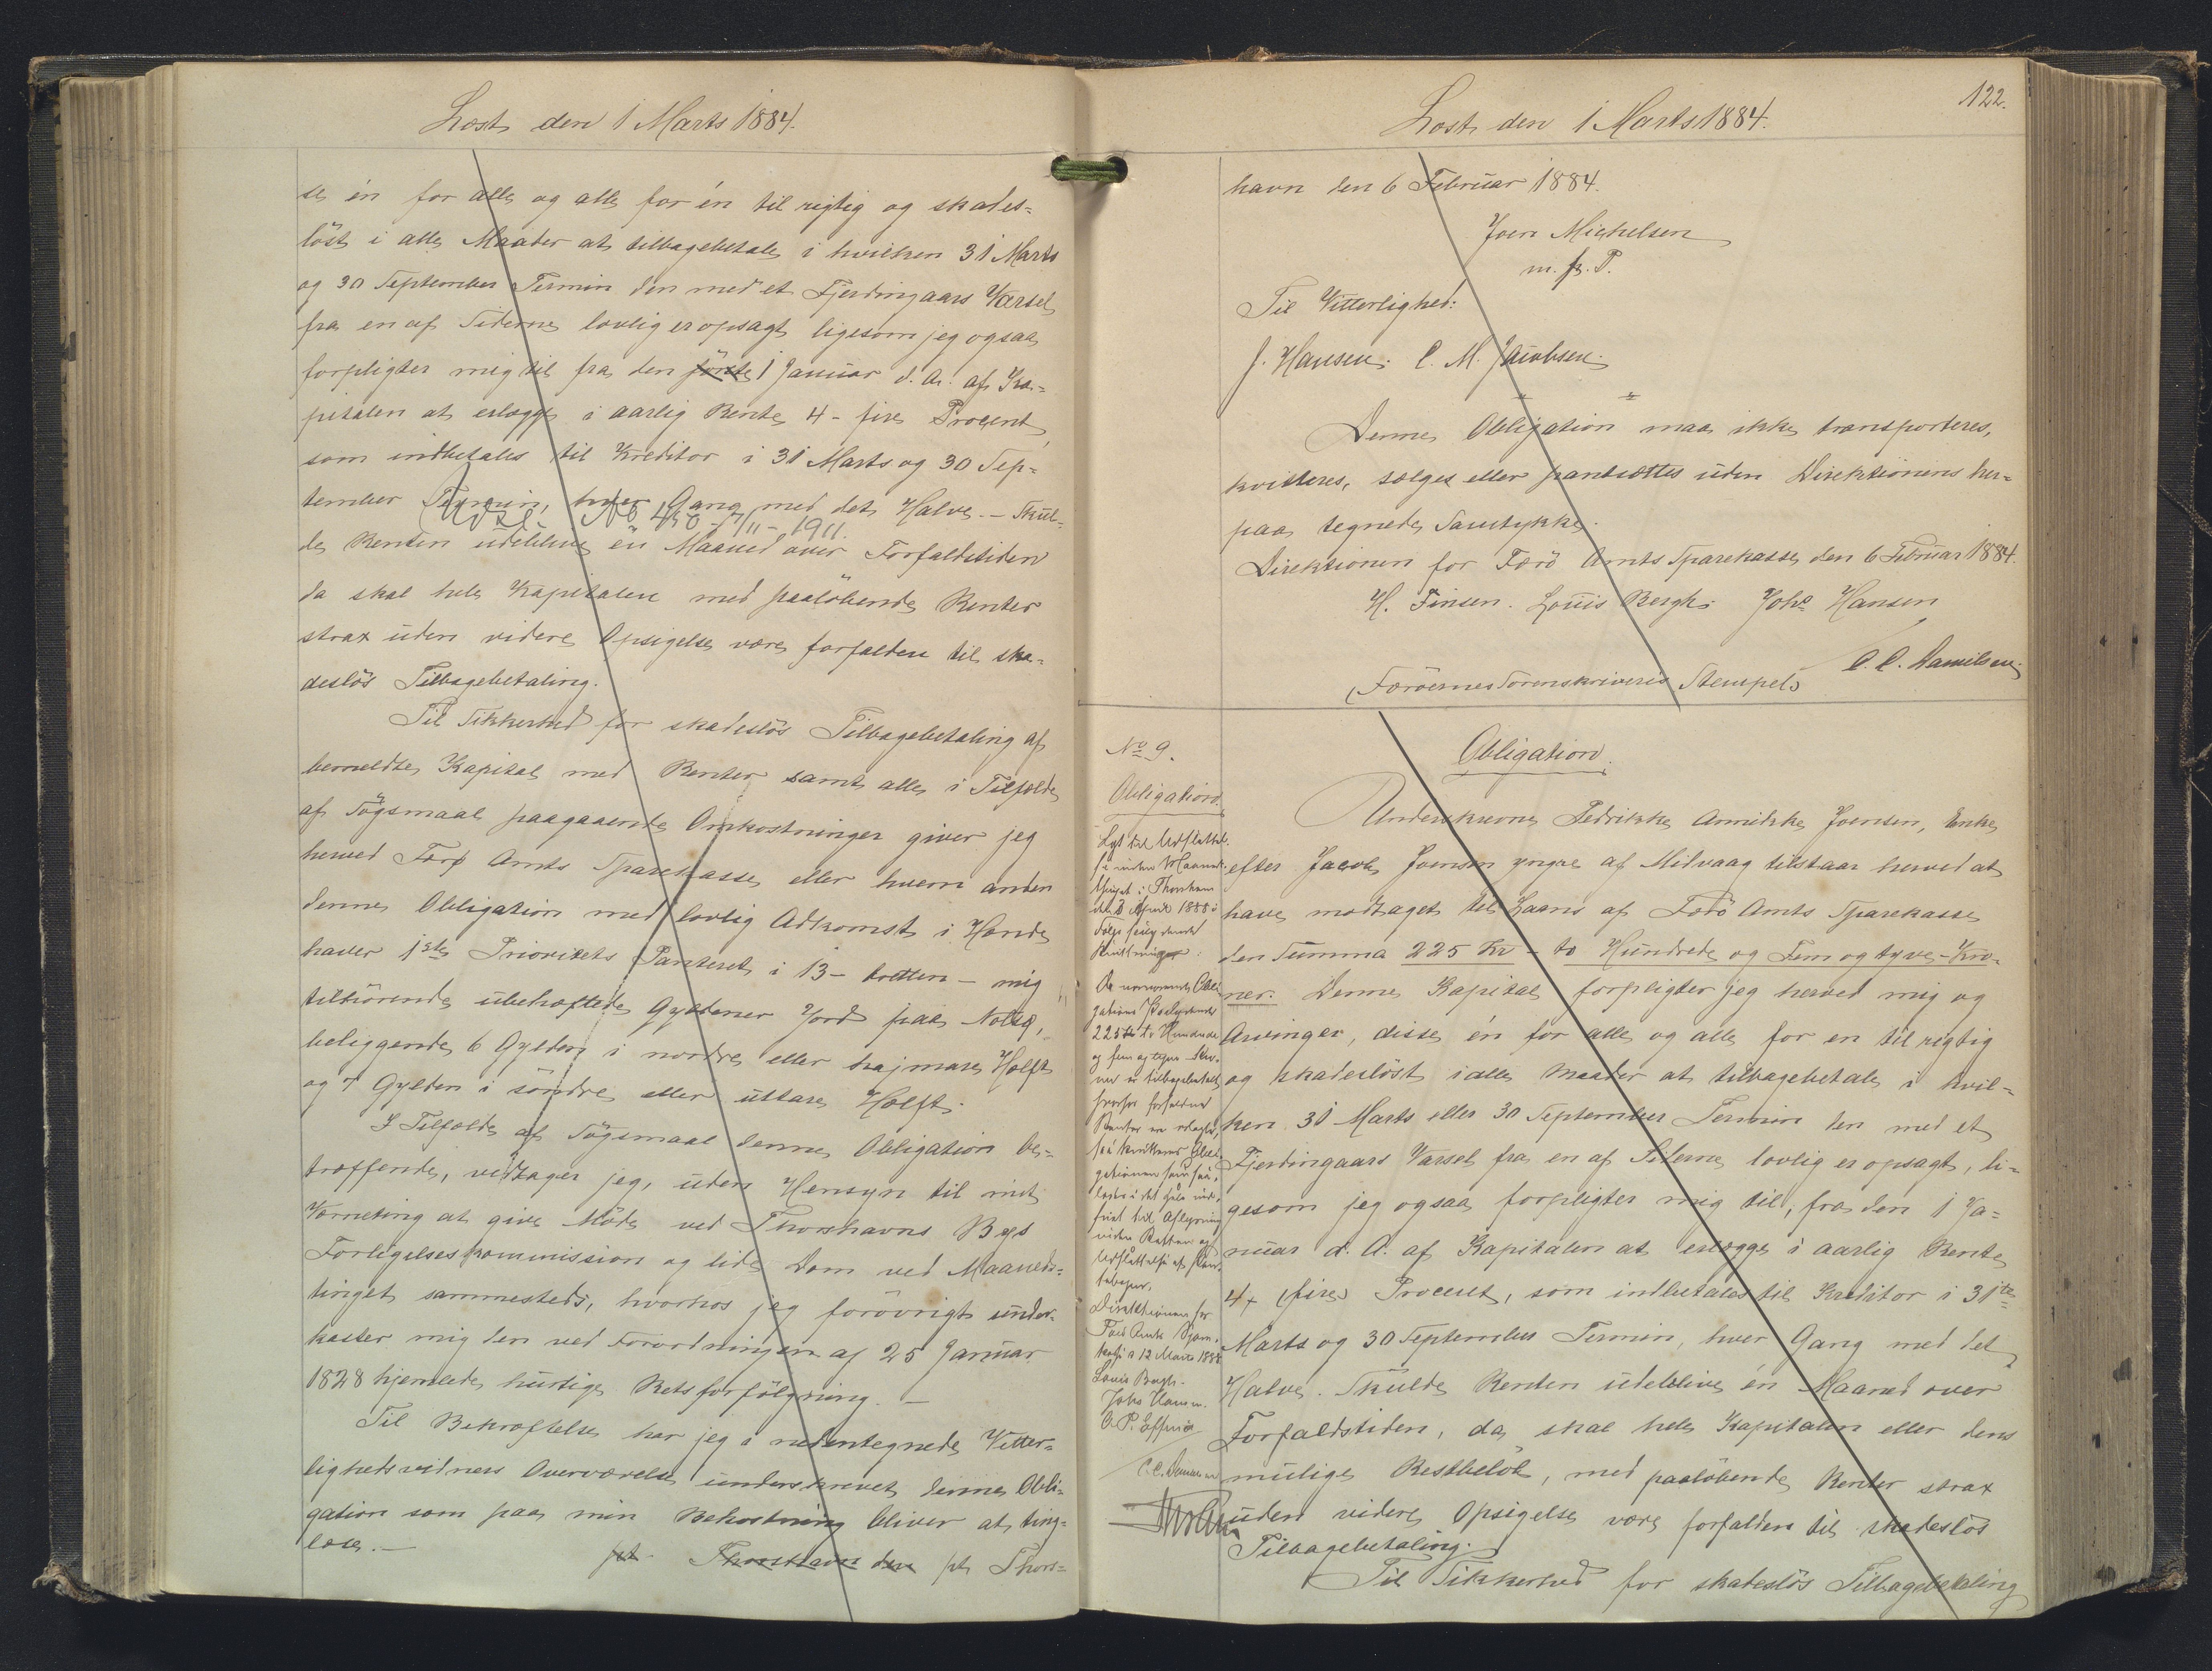 Læst den 1 Marts 1884.
se én for alle og alle for én til rigtig og skades=
löst i alle Maader at tilbagebetale i hvilken 31 Marts
og 30 September Termin den med et Fjerdingaars Varsel
fra en af Siderne lovlig er opsagt ligesom jeg ogsaa
forpligter mig til fra den förste 1 Januar d. A. af Ka=
pitalen at erlægge i aarlig Rente 4 - fire Procent,
som indbetales til Kreditor i 31 Marts og 30 Sep=
tember Termin, hver Gang med det Halve. - Skul=
No 450 - 7/11 - 1911.
de Renten udeblive én Maaned over Forfaldstiden
da skal hele Kapitalen med paalöbende Renter
strax uden videre Opsigelse være forfalden til ska=
deslös Tilbagebetaling.
Til Sikkerhed for skadeslös Tilbagebetaling af
bemeldte Kapital med Renter samt alle i Tilfælde
af Sögsmaal paagaaende Omkostninger giver jeg
herved Færø Amts Sparekasse eller hvem anden
denne Obligation med lovlig Adkomst i Hænde
haver 1ste Prioritets Panteret i 13 - tretten - mig
tilhörende ubehæftede Gyldener Jord paa Nolsø,
beliggende 6 Gylden i nordre eller hajmare Hælft
og 7 Gylden i söndre eller uttare Hælft.
I Tilfælde af Sögsmaal denne Obligation be=
træffende, vedtager jeg, uden Hensyn til mit
Værneting at give Möde ved Thorshavns Byes
Forligelseskommission og lide Dom ved Maaneds=
tinget sammesteds, hvorhos jeg forövrigt under=
kaster mig den ved Forordningen af 25 Januar
1828 hjemlede hurtige Retsforfölgning. -
Til Bekræftelse har jeg i nedentegnede Vitter=
lighedsvidners Overværelse underskrevet denne Obli=
gation som paa min Bekostning bliver at ting=
læse. -
pt. Thorshavn den pt Thors=
122.
Læst den 1 Marts 1884.
havn den 6 Februar 1884.
Joen Michelsen
m. f. P.
Til Vitterlighed:
J. Hansen. C. M. Jacobsen.
Denne Obligation maa ikke transporteres,
kvitteres, sælges eller pantsættes uden Direktionens her=
paa tegnede Samtykke.
Direktionen for Færö Amts Sparekasse den 6 Februar 1884.
H. Finsen. Louis Bergh. Johs Hansen
C. C. Danielsen.
(Færöernes Sorenskriveris Stempel)
No 9.
Obligation.
Lyst til Udslettel=
se inden Maaneds=
thinget i Thorshavn
den 3 April 1888 i
Følge saalydende
Kvittering:
Da nærværende Obli=
gations Paalydende
225 Kr to Hundrede
og fem og tyve Kro=
ner er tilbagebetalt
hvorfor forfaldne
Renter er erlagte,
saa kvitteres Obli=
gationen som saa=
ledes i det hele ind=
friet til Aflysning
inden Retten og
Udslettelse af Pan=
tebogen.
Direktionen for
Færö Amts Spare=
kasse d 12 Marts 1888
Louis Bergh.
Johs Hansen.
C. C. Danielsen
Obligation.
Underskrevne Fedrikke Annikke Joensen, Enke
efter Jacob Joensen yngre af Midvaag tilstaar herved at
have modtaget til Laans af Færö Amts Sparekasse
den Summa 225 Kr - to Hundrede og Fem og tyve - Kro=
ner. Denne Kapital forpligter jeg herved mig og
Arvinger, disse én for alle og alle for en til rigtig
og skadeslöst i alle Maader at tilbagebetale i hvil=
ken 31 Marts eller 30 September Termin den med et
Fjerdingaars Varsel fra en af Siderne lovlig er opsagt, li=
gesom jeg ogsaa forpligter mig til, fra den 1 Ja=
nuar d. A. af Kapitalen at erlægge i aarlig Rente
4 (fire) Procent, som indbetales til Kreditor i 31te
Marts og 30 September Termin, hver Gang med det
Halve. Skulde Renten udeblive én Maaned over
Forfaldstiden, da skal hele Kapitalen eller dens
mulige Restbelöb, med paalöbende Renter strax
uden videre Opsigelse være forfalden til skadeslös
Tilbagebetaling.
Til Sikkerhed for skadeslös Tilbagebetaling